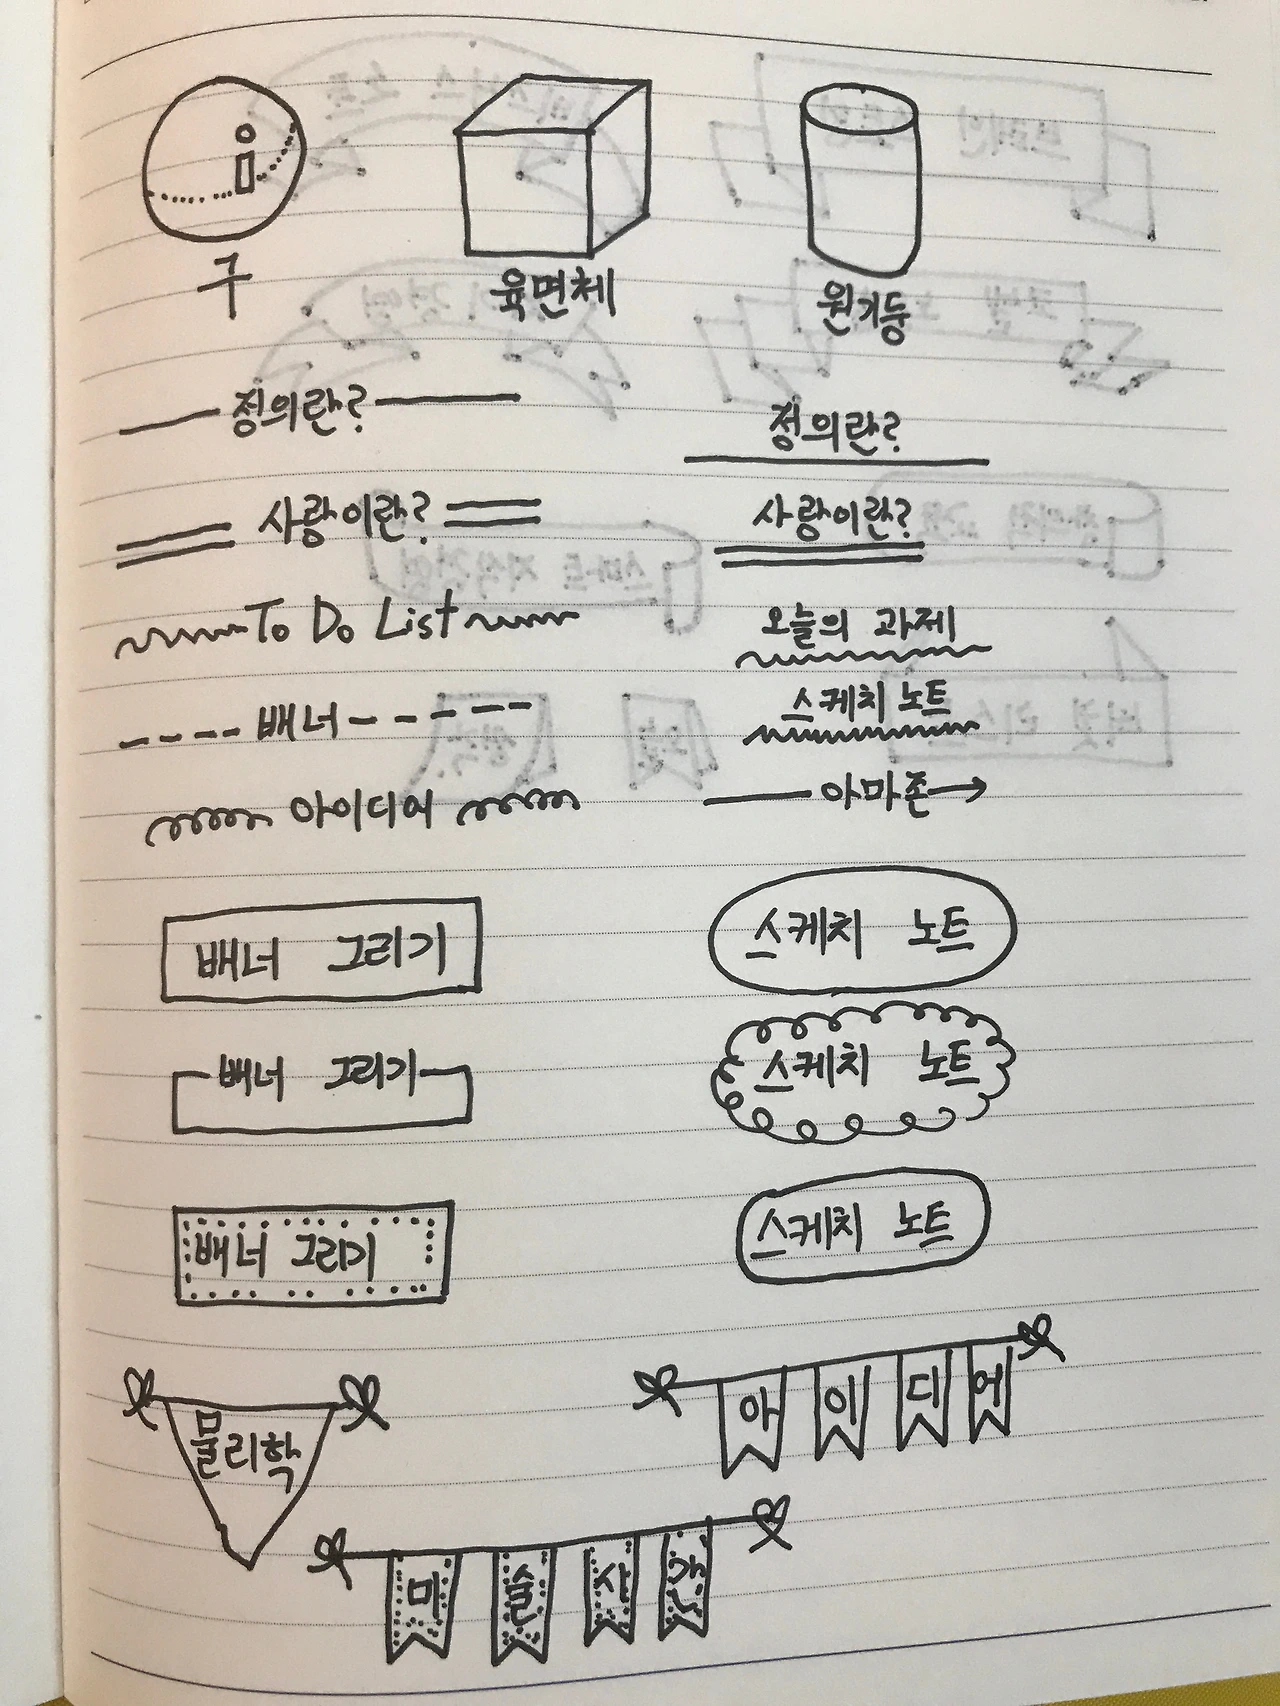 i
구 육면체 원기둥
정의란? 정의란?
사랑이란? 사랑이란?
To Do List 오늘의 과제
배너 스케치 노트
아이디어 아마존
배너 그리기 스케치 노트
배너 그리기 스케치 노트
배너 그리기 스케치 노트
물리학 아이디어
미술시간